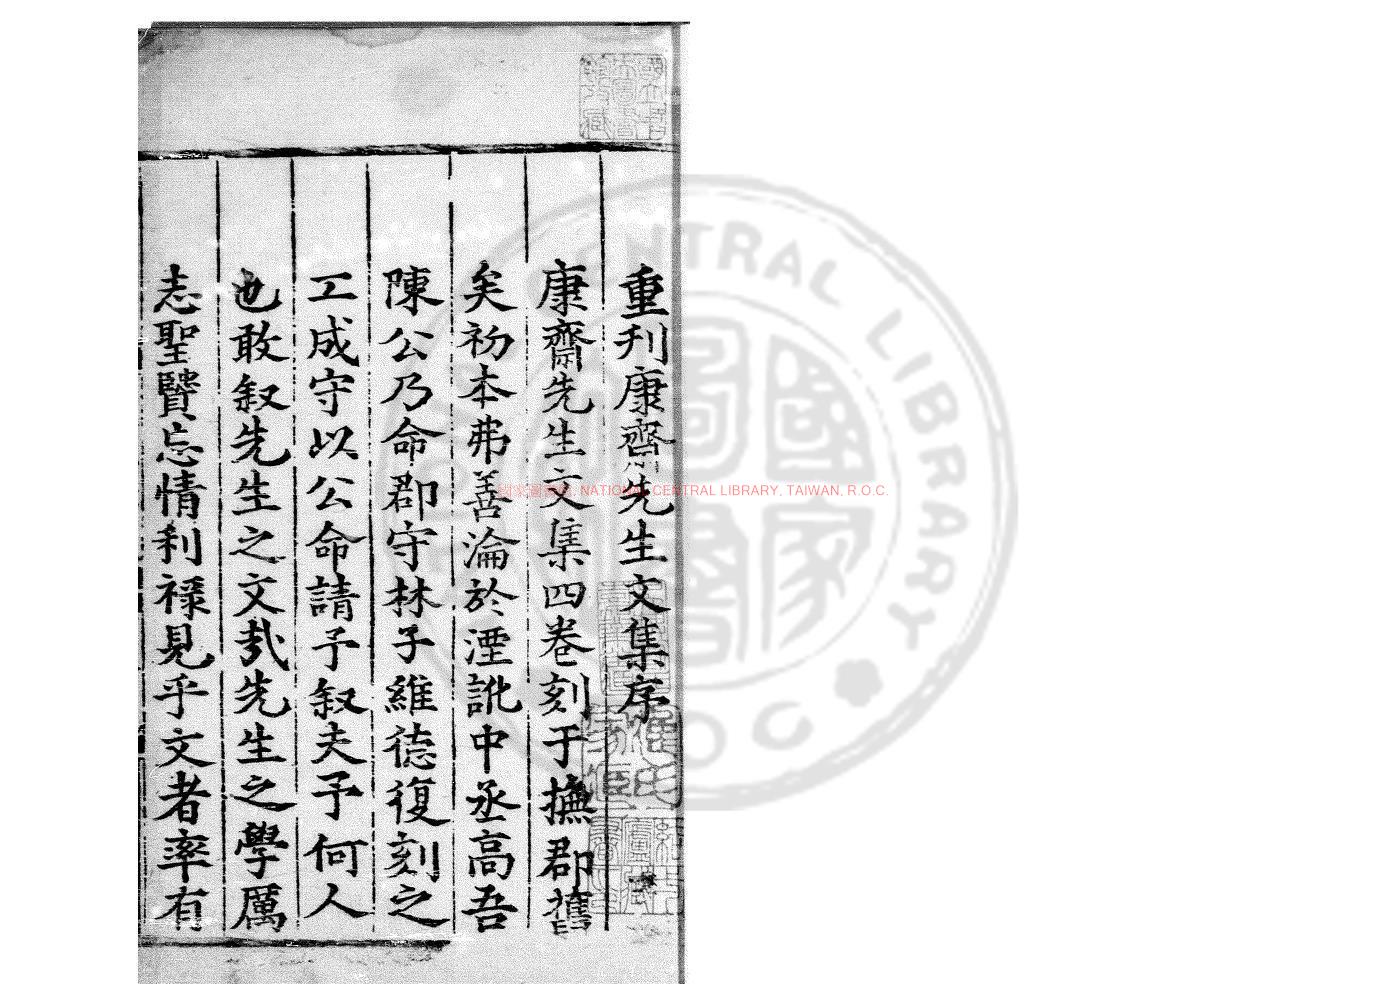 重刋康齋先生文集序
康齋先生文集四卷刻于撫郡舊
矣初本弗善淪於湮訛中丞高吾
陳公乃命郡守林子維德復刻之
工成守以公命請予叙夫予何人
也敢叙先生之文㢤先生之學厲
志聖賢忘情利祿見乎文者率有
國家圖書館, NATIONAL CENTRAL LIBRARY, TAIWAN, R.O.C.
CENTRAL LIBRARY
ROC